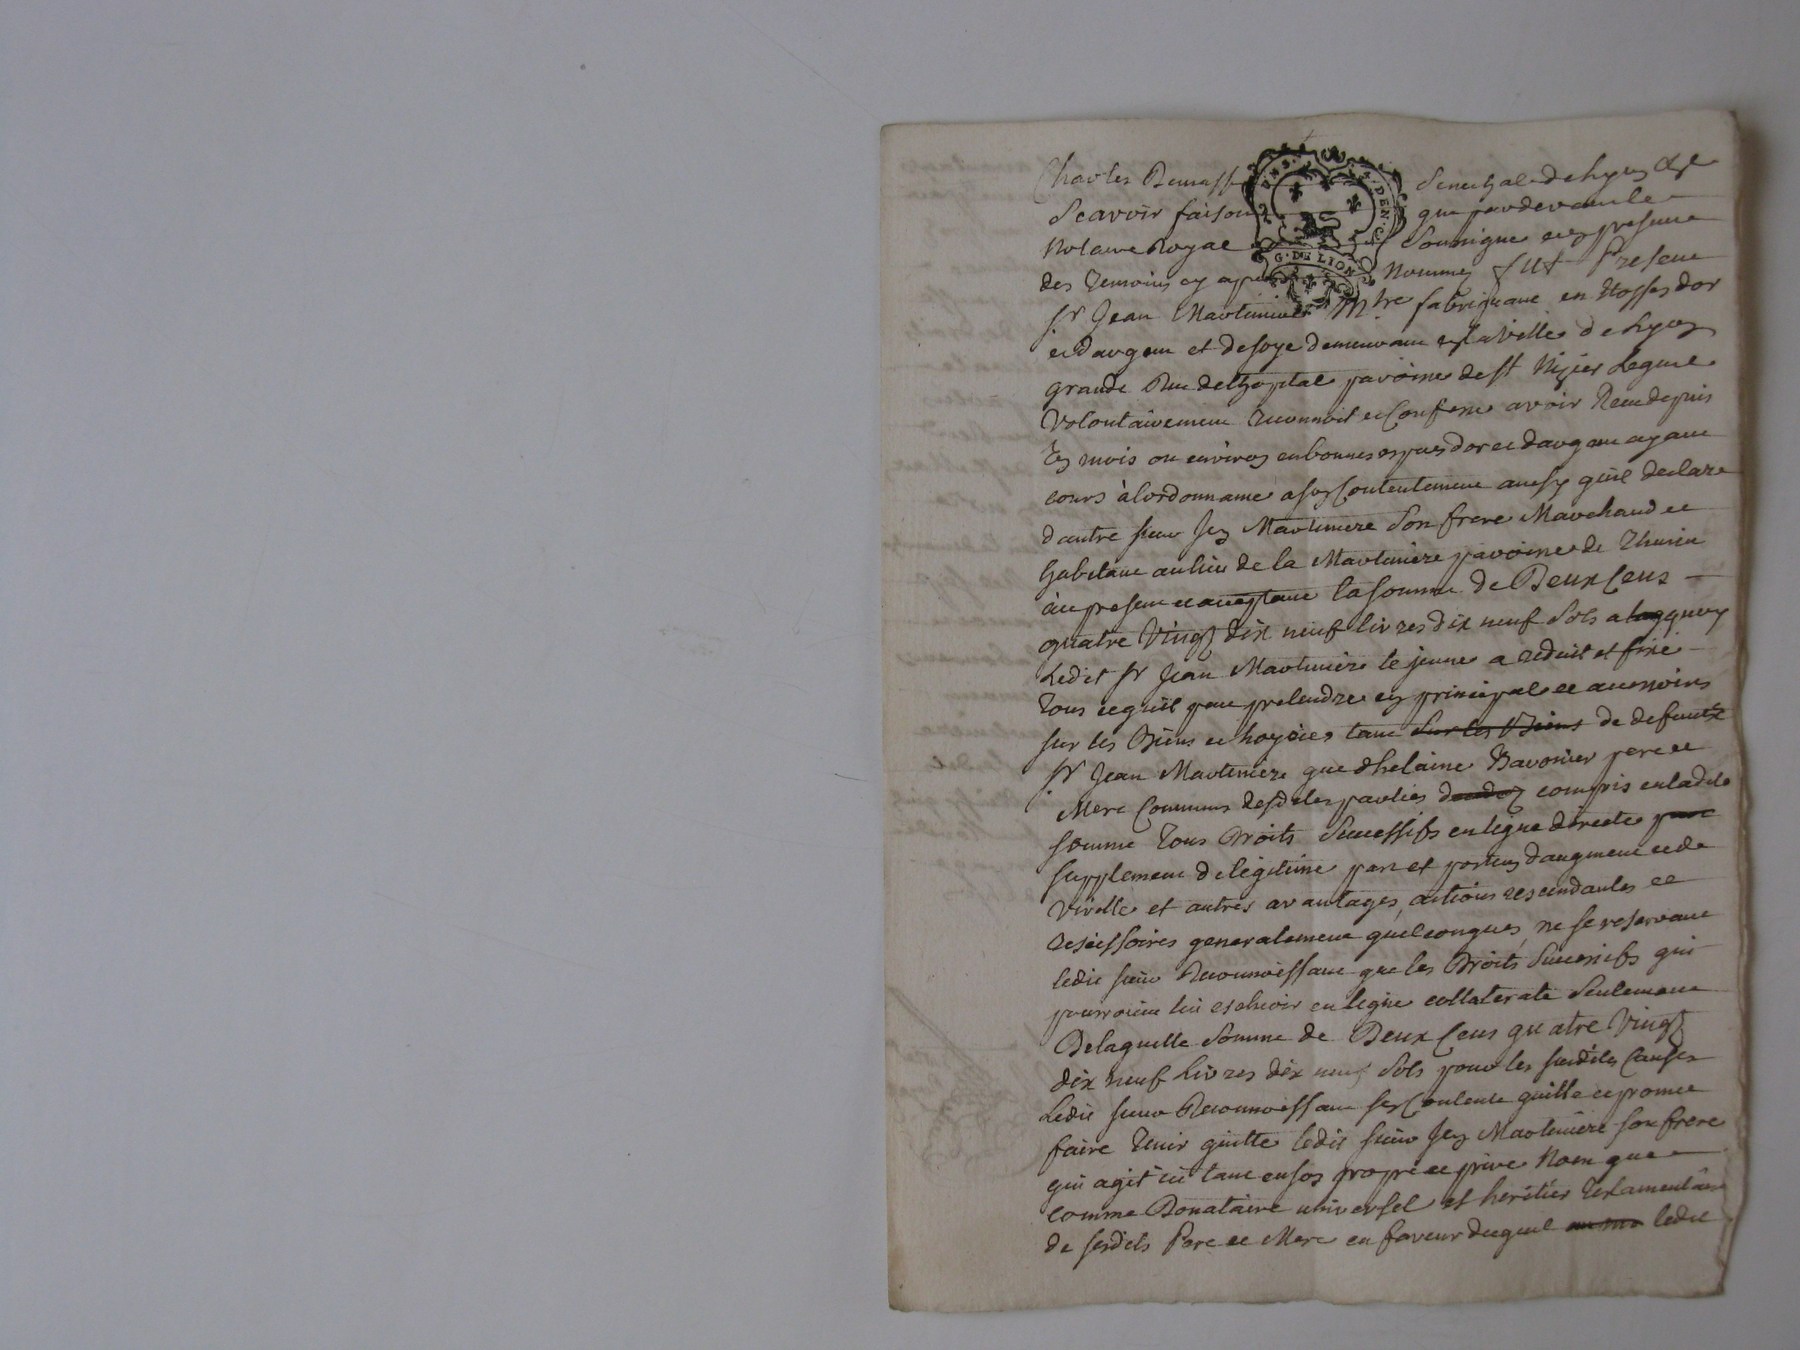 Charles Senechal de Lyon
Scavoir faison que pardevant le
Notaire Royal Soussigne en presence
G. DE LION
des Temoins cy apres Nommes fut Present
Sr Jean Martiniere Mtre fabriquant en étoffes dor
et dargent et de soye demeurant en la Ville de Lyon
grande Rue de Lhopital paroisse de St Nizier Lequel
Volontairement reconnoit et Confesse avoir Receu depuis
mois ou environ en bonnes especes dor et dargent ayant
cours à lordonnance a son Contentement ainsy quil declare
dautre sieur Martiniere Son frere Marchand et
habitant au lieu de la Martiniere paroisse de Thurin
acy present et acceptant la somme de Deux Cens
quatre Vingt dix neuf livres dix neuf Sols a quoy
Ledit Sr Jean Martiniere le jeune a reduit et fixé
Tous ce quil peut pretendre en principal et accessoires
sur les Biens et hoyries tant sur les Biens de defunts
Sr Jean Martiniere que dhelaine pere et
Mere Communs desdites parties compris en ladite
somme Tous Droits Successifs en ligne directe part
supplement de legitime part et portion daugment et de
Virille et autres avantages, actions rescindantes et
rescissoires generalement quelconques, ne se reservant
ledit sieur Reconnoissant que les Droits Successifs qui
pourroient lui eschoir en ligne collaterale Seulement
De laquelle Somme de Deux Cens quatre Vingt
dix neuf Livres dix neuf Sols pour les susdites Causes
Ledit sieur Reconnoissant se Contente quitte et promet
faire Tenir quitte ledit sieur Martiniere son frere
qui agit ici tant en son propre et prive Nom que
comme Donataire universel et heritier Testamentaire
de sesdits Pere et Mere en faveur duquel ledit